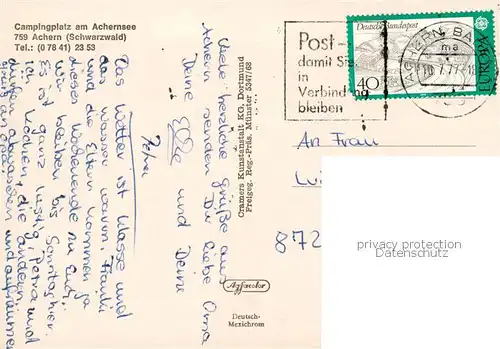 Campingplatz am Achernsee
759 Achern (Schwarzwald)
Tel.: (0 78 41) 23 53
Viele herzliche Grüße aus
Achern senden Dir liebe Oma
Deine Elke und Deine
Petra
Das Wetter ist klasse und
das Wasser warm.
und die Eltern kommen ja
dieses Wochenende zu Euch.
Wir bleiben bis Sonntag hier.
Es ist ganz lustig, Petra und
ich kochen, die anderen
dürfen abwaschen und aufräumen
Cramers Kunstanstalt KG, Dortmund
Freigeg. Reg.-Präs. Münster 5347/68
Agfacolor
Deutsch-
Mexichrom
Post-
damit Sie
in
Verbindung
bleiben
Deutsche Bundespost
40
EUROPA
ACHERN, BA
ma
An Frau
872
privacy protection
Datenschutz